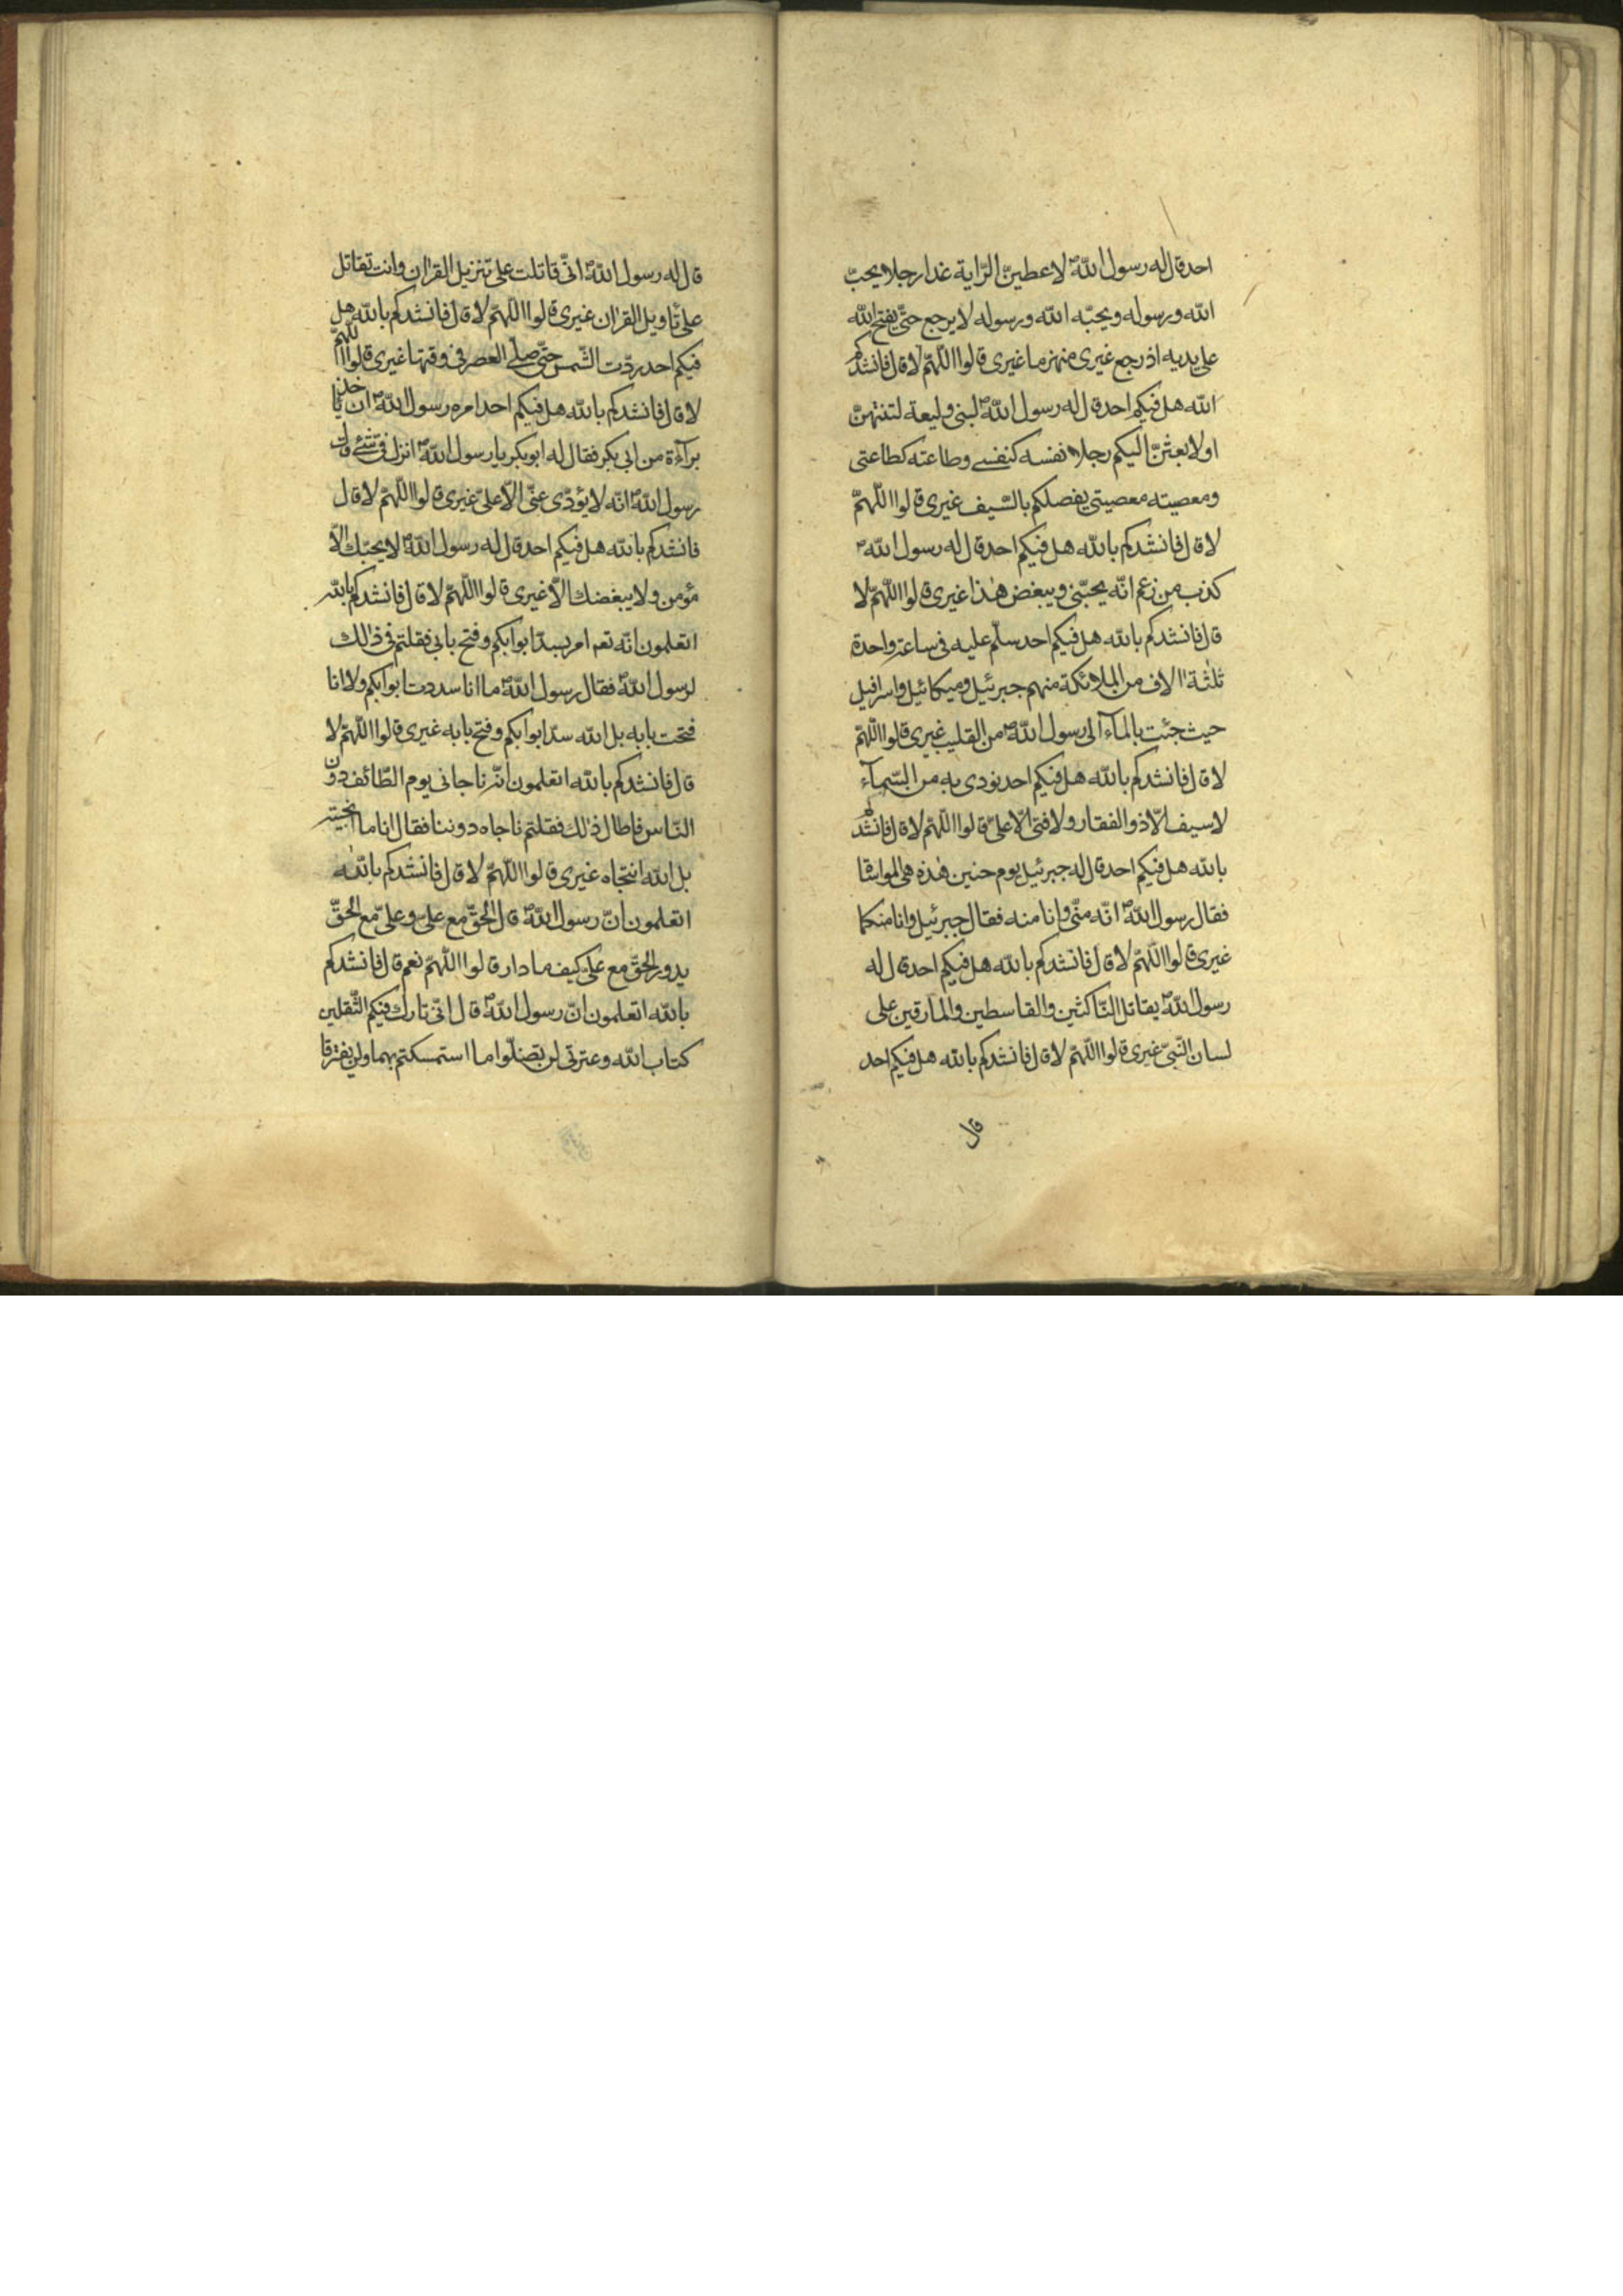 احد قال له رسول الله ص لاعطينّ الرّاية غدا رجلا يحبّ
الله ورسوله ويحبّه الله ورسوله لا يرجع حتّى يفتح الله
على يديه اذ رجع غيرى منهزما غيرى قالوا اللّهمّ لا قال فانشدكم
الله هل فيكم احد قال له رسول الله ص لبنى وليعة لتنتهنّ
او لابعثنّ اليكم رجلا نفسه كنفسى وطاعته كطاعتى
ومعصيته معصيتى يفصلكم بالسّيف غيرى قالوا اللّهمّ
لا قال فانشدكم بالله هل فيكم احد قال له رسول الله ص
كذب من زعم انّه يحبّنى ويبغض هذا غيرى قالوا اللّهمّ لا
قال فانشدكم بالله هل فيكم احد سلّم عليه فى ساعة واحدة
ثلثة الاف من الملائكة منهم جبرئيل وميكائيل واسرافيل
حيث جئت بالمآء الى رسول الله ص من القليب غيرى قالوا اللّهمّ
لا قال فانشدكم بالله هل فيكم احد نودى به من السّمآء
لا سيف الّا ذو الفقار ولا فتى الّا علىّ قالوا اللّهمّ لا قال فانشدكم
بالله هل فيكم احد قال له جبرئيل يوم حنين هذه هى المواساة
فقال رسول الله ص انّه منّى وانا منه فقال جبرئيل وانا منكما
غيرى قالوا اللّهمّ لا قال فانشدكم بالله هل فيكم احد قال له
رسول الله ص يقاتل النّاكثين والقاسطين والمارقين على
لسان النّبىّ غيرى قالوا اللّهمّ لا قال فانشدكم بالله هل فيكم احد
قال
قال له رسول الله ص انّى قاتلت على تنزيل القران وانت تقاتل
على تاويل القران غيرى قالوا اللّهمّ لا قال فانشدكم بالله هل
فيكم احد ردّت الشّمس حتّى صلّى العصر فى وقتها غيرى قالوا اللّهمّ
لا قال فانشدكم بالله هل فيكم احد امره رسول الله ص ان ياخذ
برآءة من ابى بكر فقال له ابو بكر يا رسول الله ص انزل فىّ شئ فقال
رسول الله ص انّه لا يؤدّى عنّى الّا علىّ غيرى قالوا اللّهمّ لا قال
فانشدكم بالله هل فيكم احد قال له رسول الله ص لا يحبّك الّا
مؤمن ولا يبغضك الّا غيرى قالوا اللّهمّ لا قال فانشدكم بالله
اتعلمون انّه امر بسدّ ابوابكم وفتح بابى فقلتم فى ذالك
لرسول الله ص فقال رسول الله ص ما انا سددت ابوابكم ولا انا
فتحت بابه بل الله سدّ ابوابكم وفتح بابه غيرى قالوا اللّهمّ لا
قال فانشدكم بالله اتعلمون انّه ناجانى يوم الطّائف دون
النّاس فاطال ذلك فقلتم ناجاه دوننا فقال انا ما انتجيته
بل الله انتجاه غيرى قالوا اللّهمّ لا قال فانشدكم بالله
اتعلمون انّ رسول الله ص قال الحقّ مع علىّ وعلىّ مع الحقّ
يدور الحقّ مع علىّ كيف ما دار قالوا اللّهمّ نعم قال فانشدكم
بالله اتعلمون انّ رسول الله ص قال انّى تارك فيكم الثّقلين
كتاب الله وعترتى لن تضلّوا ما استمسكتم بهما ولن يفترقا